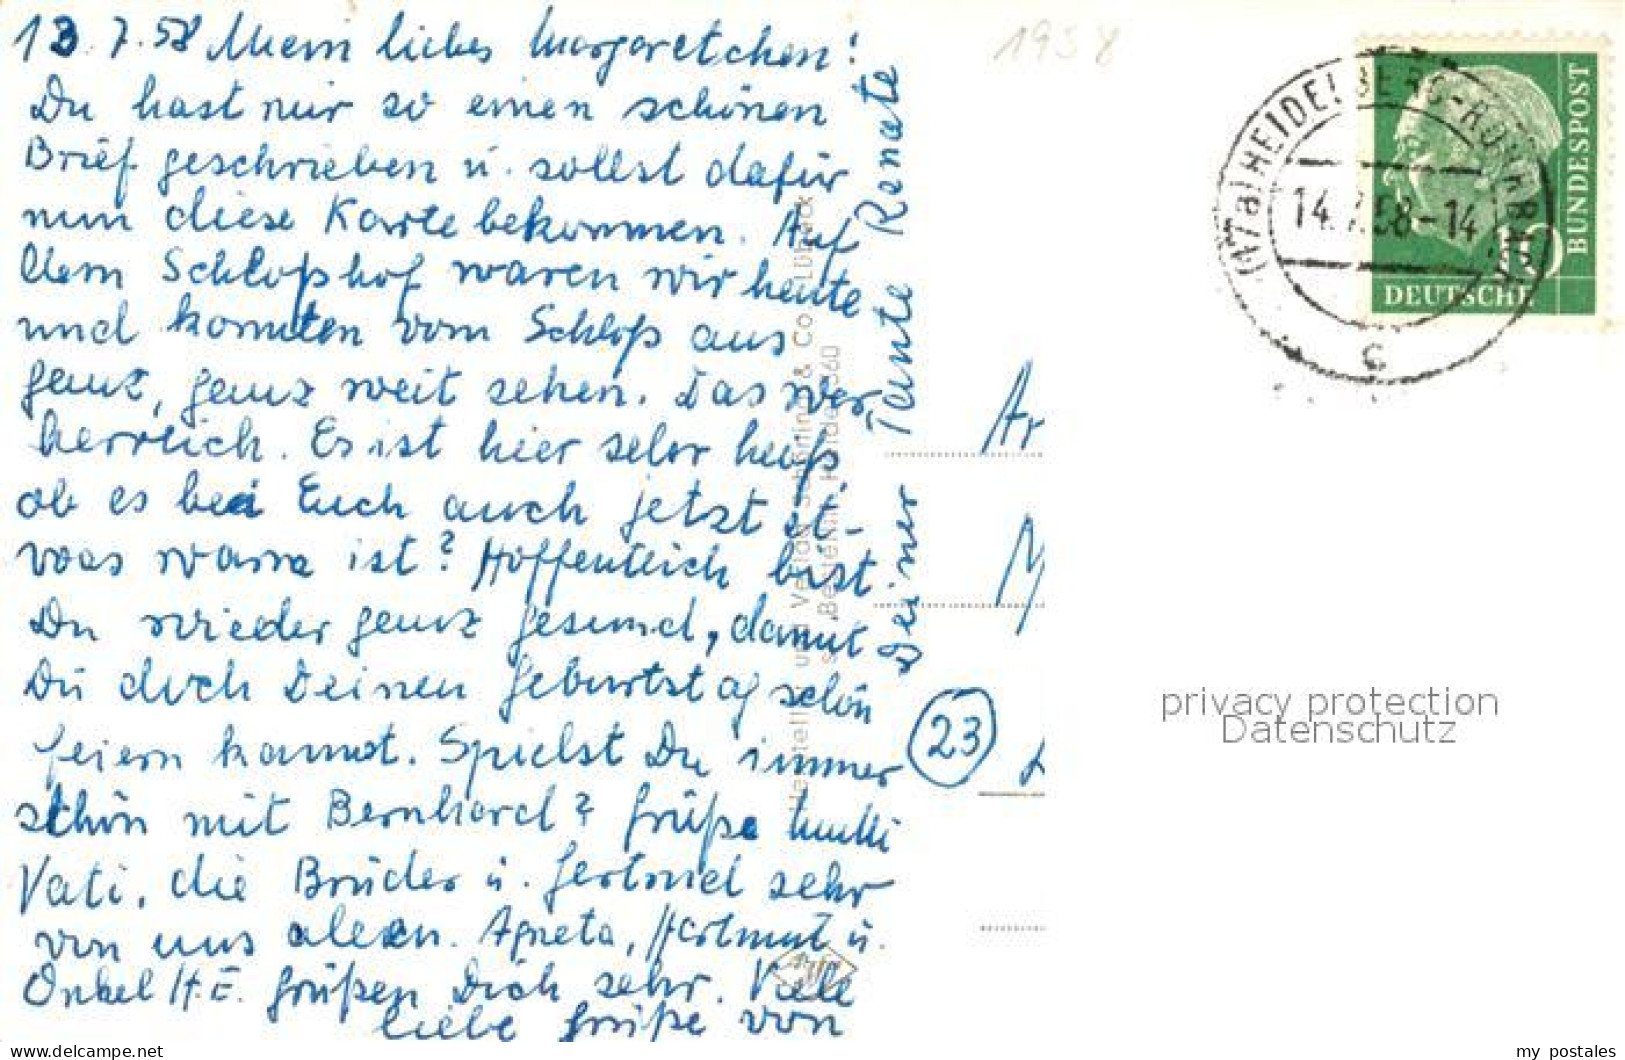 13.7.58 Mein liebes Margaretchen!
Du hast mir so einen schönen
Brief geschrieben u. sollst dafür
nun diese Karte bekommen. Auf
dem Schloßhof waren wir heute
und konnten vom Schloß aus
ganz, ganz weit sehen. Das war
herrlich. Es ist hier sehr heiß,
ob es bei Euch auch jetzt et-
was warm ist? Hoffentlich bist
Du wieder ganz gesund, damit
Du doch Deinen Geburtstag schön
feiern kannst. Spielst Du immer
schön mit Bernhard? Grüße Mutti
Vati, die Brüder u. Gertrud sehr
von uns allen. Agneta, Hartmut u.
Onkel H.E. grüßen Dich sehr. Viele
liebe Grüße von
Deiner Tante Renate
1958
(17a) HEIDELBERG-ROHRBACH
14.7.58-14
c
DEUTSCHE
BUNDESPOST
10
Ar
M
23
privacy protection
Datenschutz
www.delcampe.net
my_postales